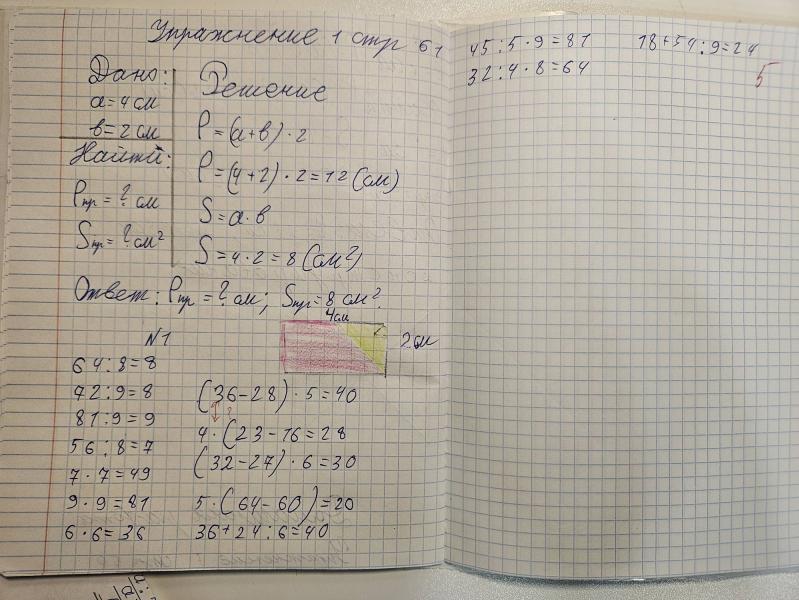 Упражнение 1 стр 61
Дано:
a=4 см
b=2 см
Найти:
Pпр = ? см
Sпр = ? см²
Решение
P=(a+b)·2
P=(4+2)·2=12(см)
S=a·b
S=4·2=8(см²)
Ответ: Pпр = ? см; Sпр=8 см².
4см
2см
№1
64:8=8
72:9=8
81:9=9
56:8=7
7·7=49
9·9=81
6·6=36
(36-28)·5=40
4·(23-16=28
(32-27)·6=30
5·(64-60)=20
36+24:6=40
45:5·9=81
32:4·8=64
18+54:9=24
5